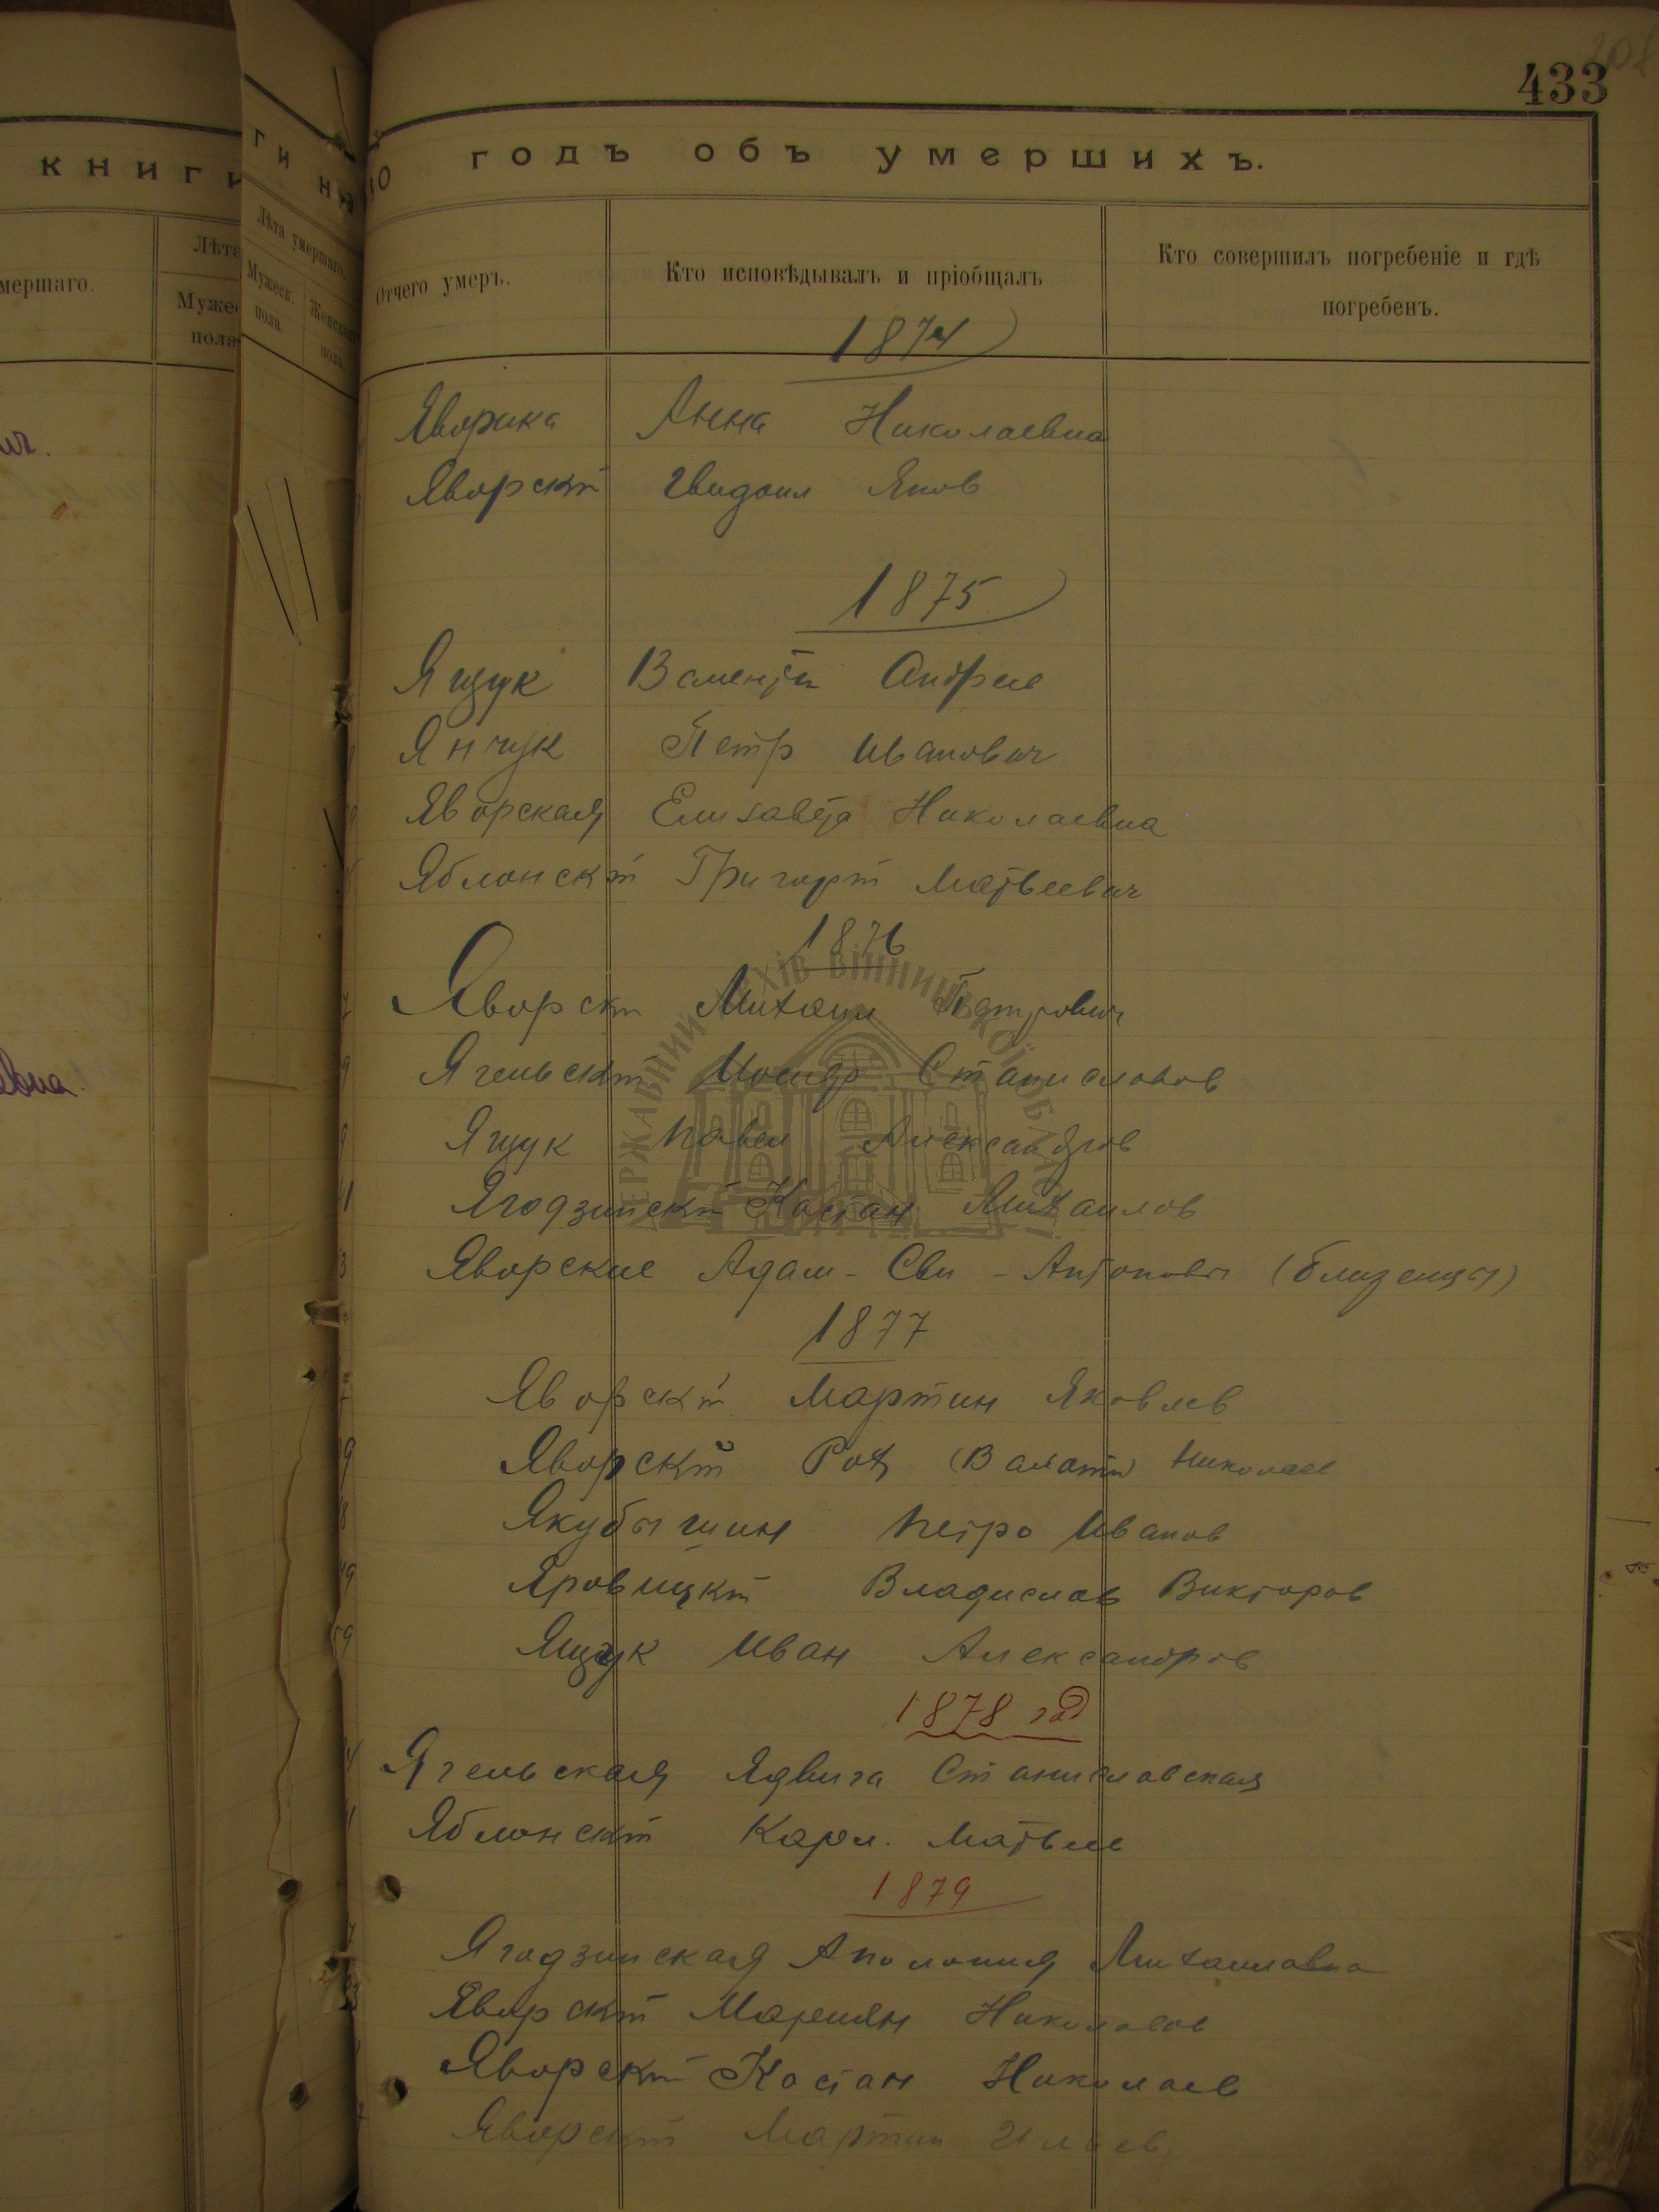 433
книги
ги на
10 годъ объ умершихъ.
мершаго.
Лѣта
Мужес
пола
Лѣта умершаго.
Мужеск. пола.
Женскаго пола.
Отчего умеръ.
Кто исповѣдывалъ и пріобщалъ
Кто совершилъ погребеніе и гдѣ погребенъ.
1874
Яворска Анна Николаевна
Яворскій Яков
1875
Ящук Валентин Андреев
Янчук Петр Иванович
Яворская Елизавета Николаевна
Яблонский Григорий Матвеевич
1876
Яворский Михаил Петрович
Ягельский Станиславов
Ящук Павел Александров
Ягодзинский Костан Михаилов
Яворские Адам - Антоновы (близнецы)
1877
Яворский Мартин Яковлев
Яворский Рох Николаев
Якубышин Петро Иванов
Яровицкий Владислав Викторов
Ящук Иван Александров
1878 год
Ягельская Ядвига Станиславская
Яблонский Карл. Матвеев
1879
Ягодзинская Аполония Михаиловна
Яворский Мариян Николаев
Яворский Костан Николаев
Яворский Мартин
ДЕРЖАВНИЙ АРХІВ ВІННИЦЬКОЇ ОБЛ